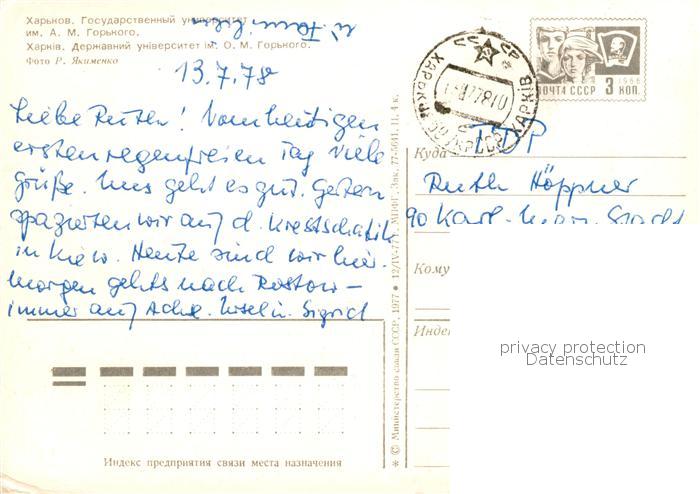 Харьков. Государственный университет
им. А. М. Горького.
Харків. Державний університет ім. О. М. Горького.
Фото Р. Якименко
13.7.78
Liebe Ruth! Vom heutigen
ersten regenfreien Tag viele
Grüße. Uns geht es gut. Gestern
spazierten wir auf d. Krestschatik
in Kiew. Heute sind wir hier.
Morgen gehts nach Rostow –
immer auf Achse. Ursel u. Sigrid
ПОЧТА СССР 3 КОП.
1966
ХАРКІВ
Куда
Ruth Höppner
90 Karl-Marx-Stadt
Кому
Индекс
privacy protection
Datenschutz
* © Министерство связи СССР, 1977 • 12/IV-77 г. МПФГ. Зак. 77-5641. II. 4 к.
Индекс предприятия связи места назначения